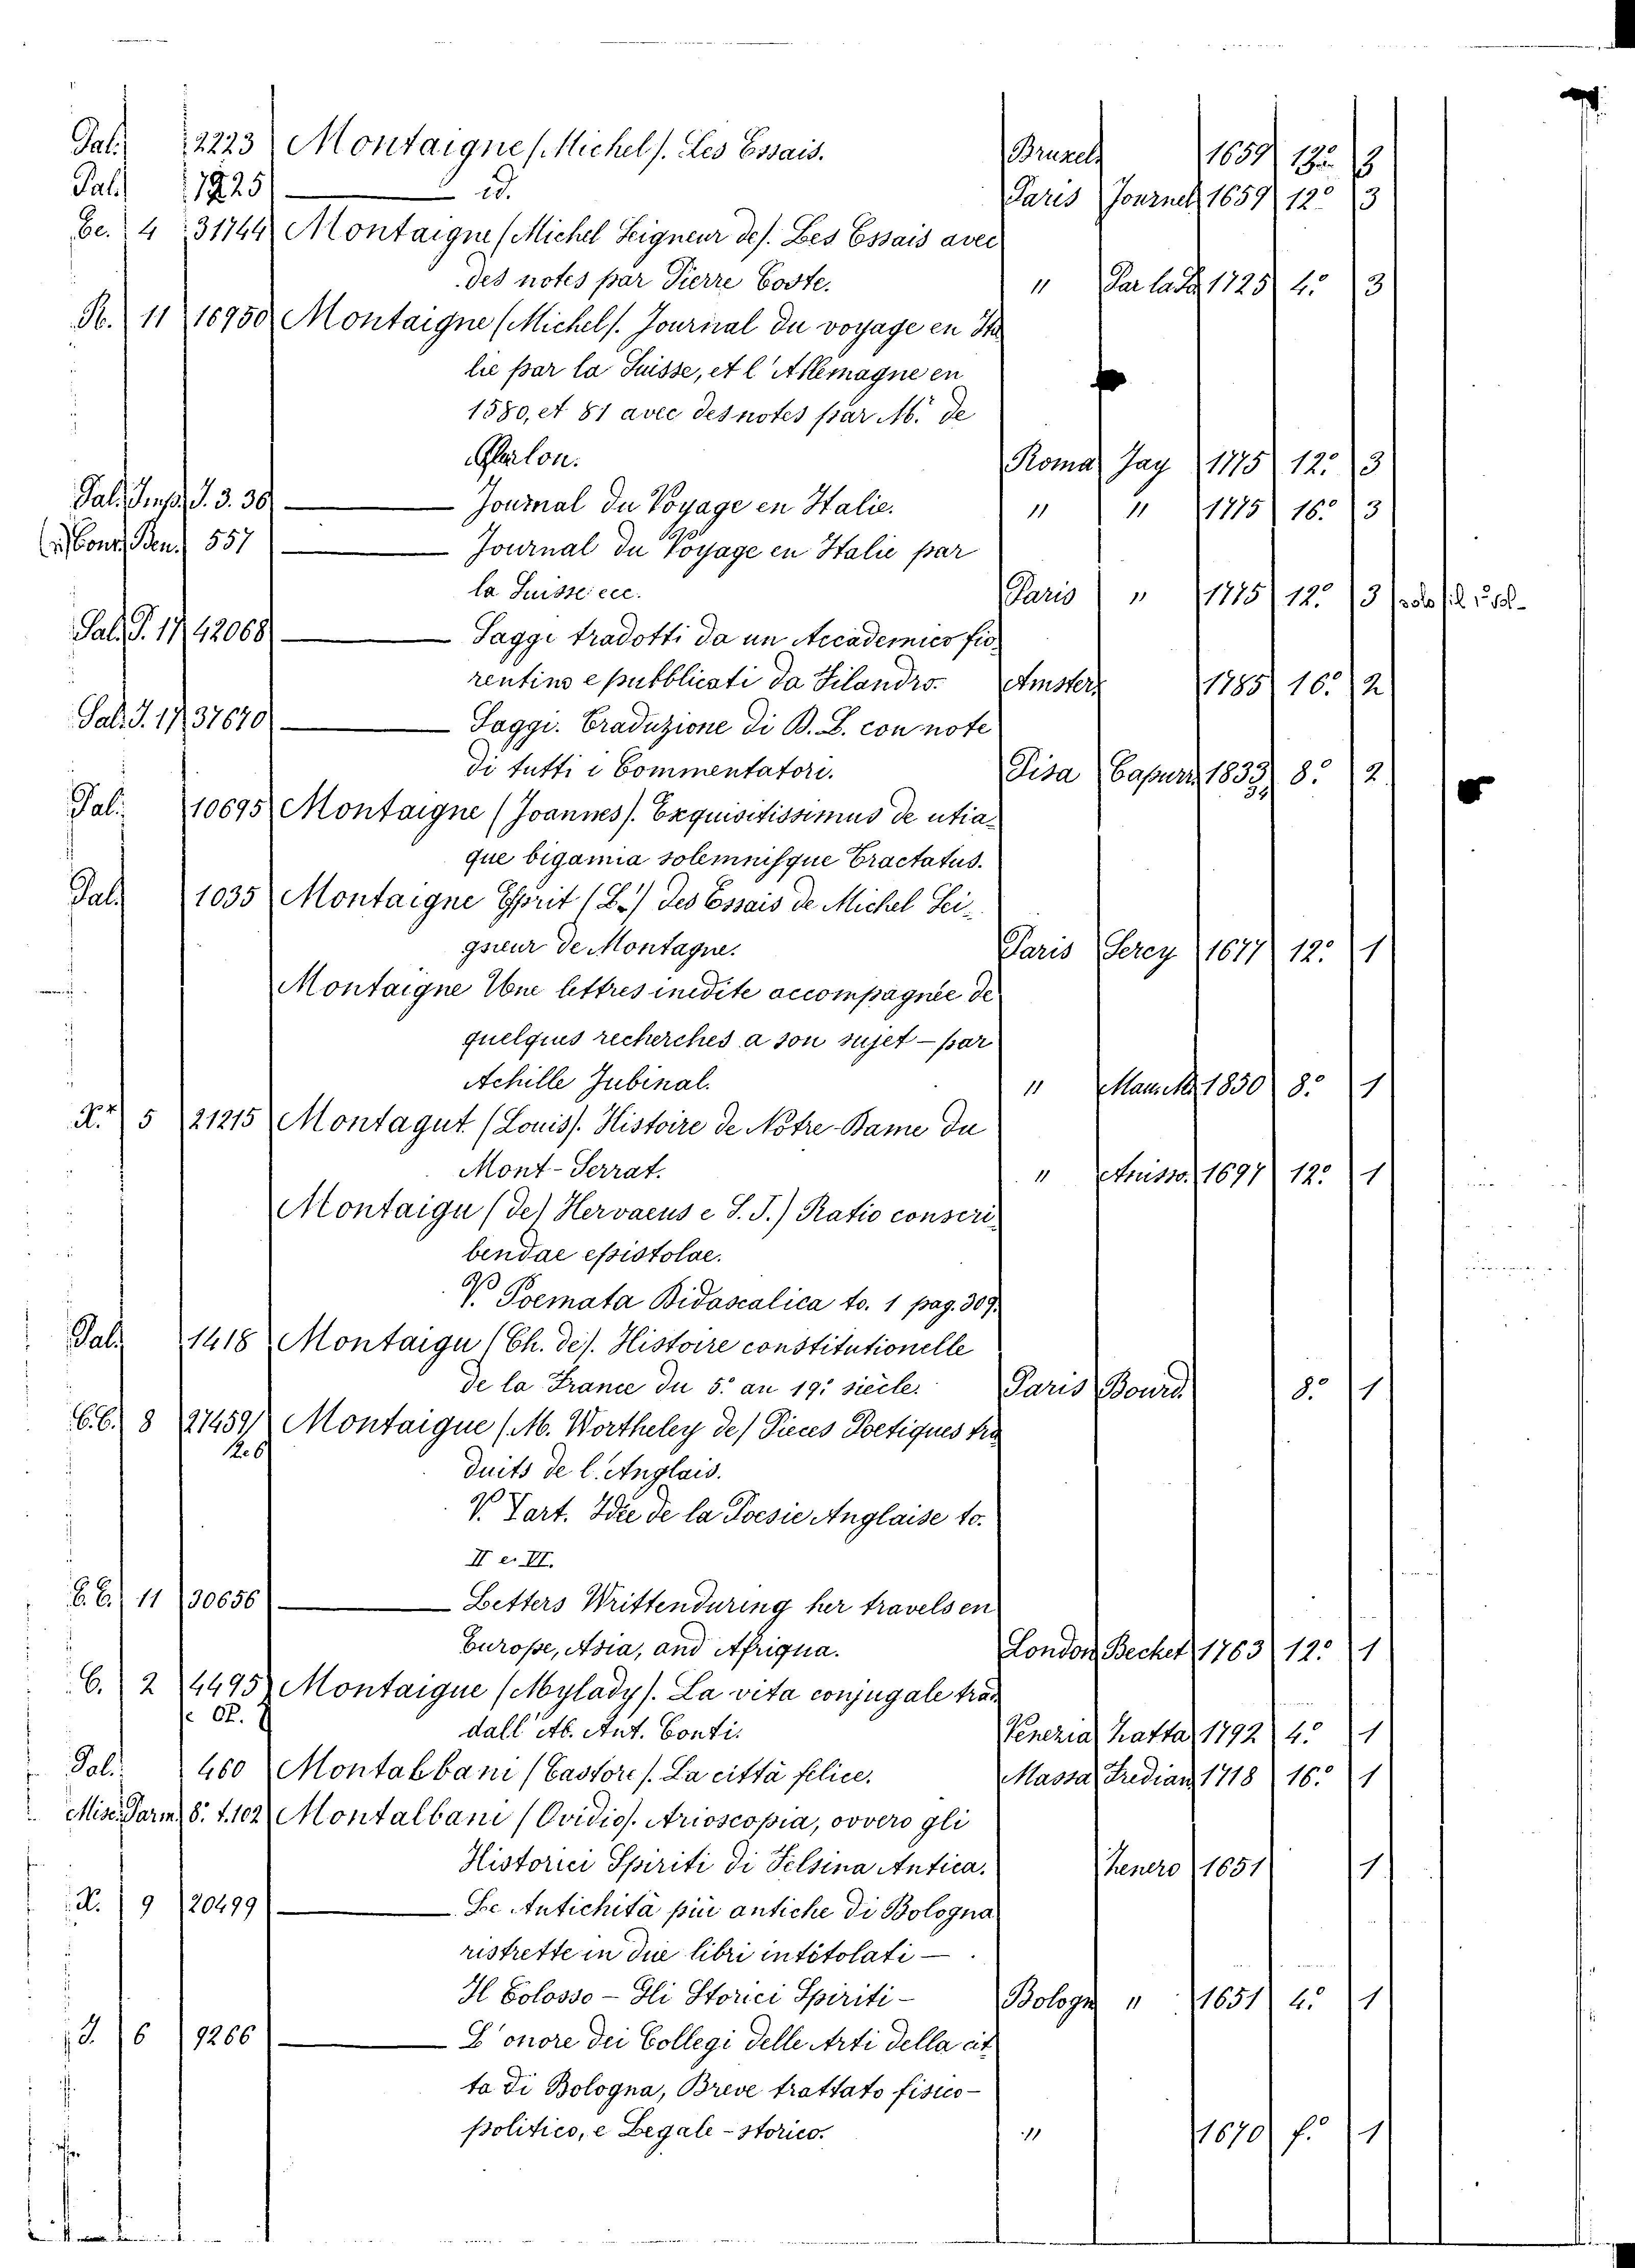 Pal. 12223 Montaigne (Michel). Les Essais. Bruxel. 1659 12º 3
Pal. id. Paris Journel 1659 12º 3
Ce. 4 31744 Montaigne (Michel Seigneur de). Les Essais avec
des notes par Pierre Coste. " Par la 1725 4º 3
R. 11 16950 Montaigne (Michel). Journal du voyage en Ita
lie par la Suisse, et l'Allemagne en
1580, et 81 avec des notes par M. de
Querlon. Roma Jay 1775 12º 3
Pal. Imp. J. 3. 36 Journal du Voyage en Italie. " " 1775 16º 3
Ben. 557 Journal du Voyage en Italie par
la Suisse ecc. Paris " 1775 12º 3 solo il 1º vol.
Sal. P. 17 42068 Saggi tradotti da un Accademico fio
rentino e pubblicati da Filandro. Amster. 1785 16º 2
Sal. J. 17 37670 Saggi. Traduzione di B. B. con note
di tutti i Commentatori. Pisa Capurr. 1833 34 8º 2
Pal. 10695 Montaigne (Joannes). Exquisitissimus de utia-
que bigamia solemnisque Tractatus.
Pal. 1035 Montaigne Esprit (L') des Essais de Michel Sei-
gneur de Montagne. Paris Sercy 1677 12º 1
Montaigne Une lettres inedite accompagnée de
quelques recherches a son sujet - par
Achille Jubinal. " 1850 8º 1
5 21215 Montagut (Louis). Histoire de Nôtre-Dame du
Mont-Serrat. " Anisso. 1697 12º 1
Montaigu (de) Hervaeus e S. J.) Ratio conscri-
bendae epistolae.
V. Poemata Didascalica to. 1 pag. 309.
Pal. 1418 Montaigu (Ch. de). Histoire constitutionelle
de la France du 5º an 19º siecle. Paris Bourd. 8º 1
C.C. 8 27459 Montaigue (M. Wortheley de) Pieces Poetiques tra
2 e 6 duits de l. Anglais.
V. Yart. Idée de la Poesie Anglaise to.
II e. VI.
C.C. 11 30656 Letters Writtenduring her travels en
Europe, Asia, and Afriqua. London Becket 1763 12º 1
C. 2 4495 Montaigue (Mylady). La vita conjugale trad.
dall' Ab. Ant. Conti. Venezia Zatta 1792 4º 1
Pal. 460 Montabbani (Castore). La città felice. Massa Fredian. 1718 16º 1
Misc. Parm. 8º t. 102 Montalbani (Ovidio). Arioscopia, ovvero gli
Historici Spiriti di Felsina Antica. Zenero 1651 1
X. 9 20499 Le Antichità più antiche di Bologna
ristrette in due libri intitolati -
Il Colosso - Gli Storici Spiriti - Bologn " 1651 4º 1
J. 6 9266 L'onore dei Collegi delle Arti della cit
ta di Bologna, Breve trattato fisico-
politico, e Legale-storico. " 1670 fº 1